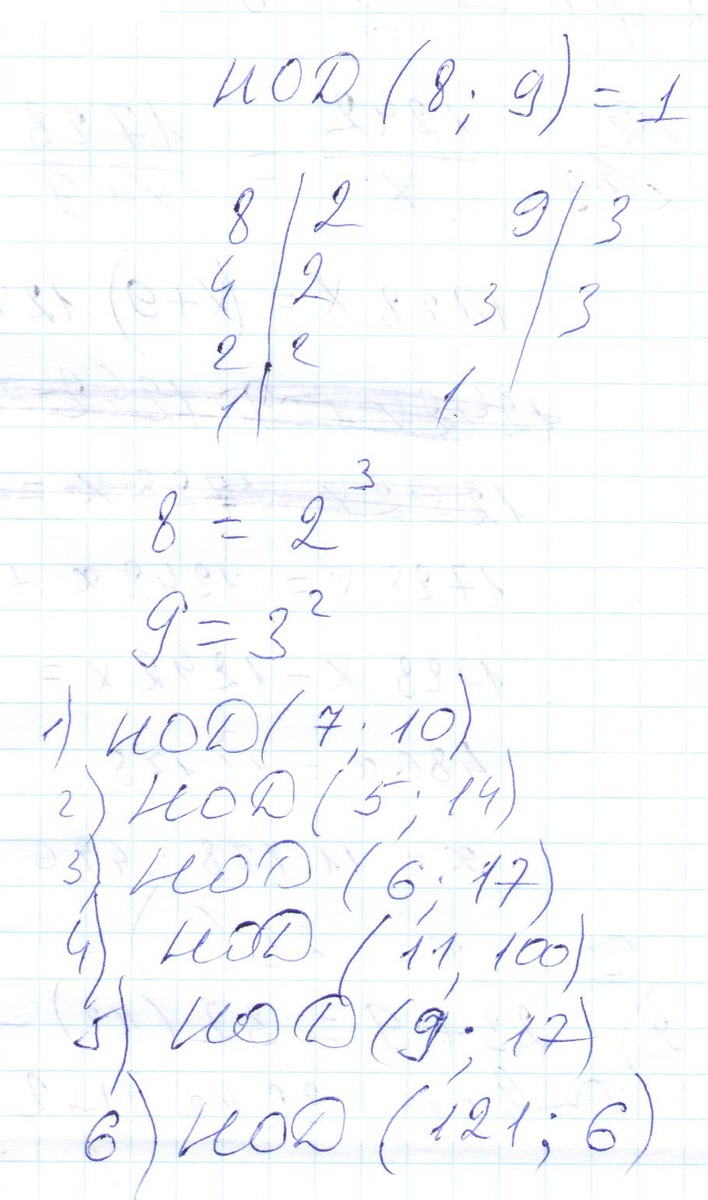 НОД (8; 9) = 1
8 | 2 9 | 3
4 | 2 3 | 3
2 | 2
1 | 1
8 = 2³
9 = 3²
1) НОД (7; 10)
2) НОД (5; 14)
3) НОД (6; 17)
4) НОД (11, 100)
5) НОД (9; 17)
6) НОД (121; 6)